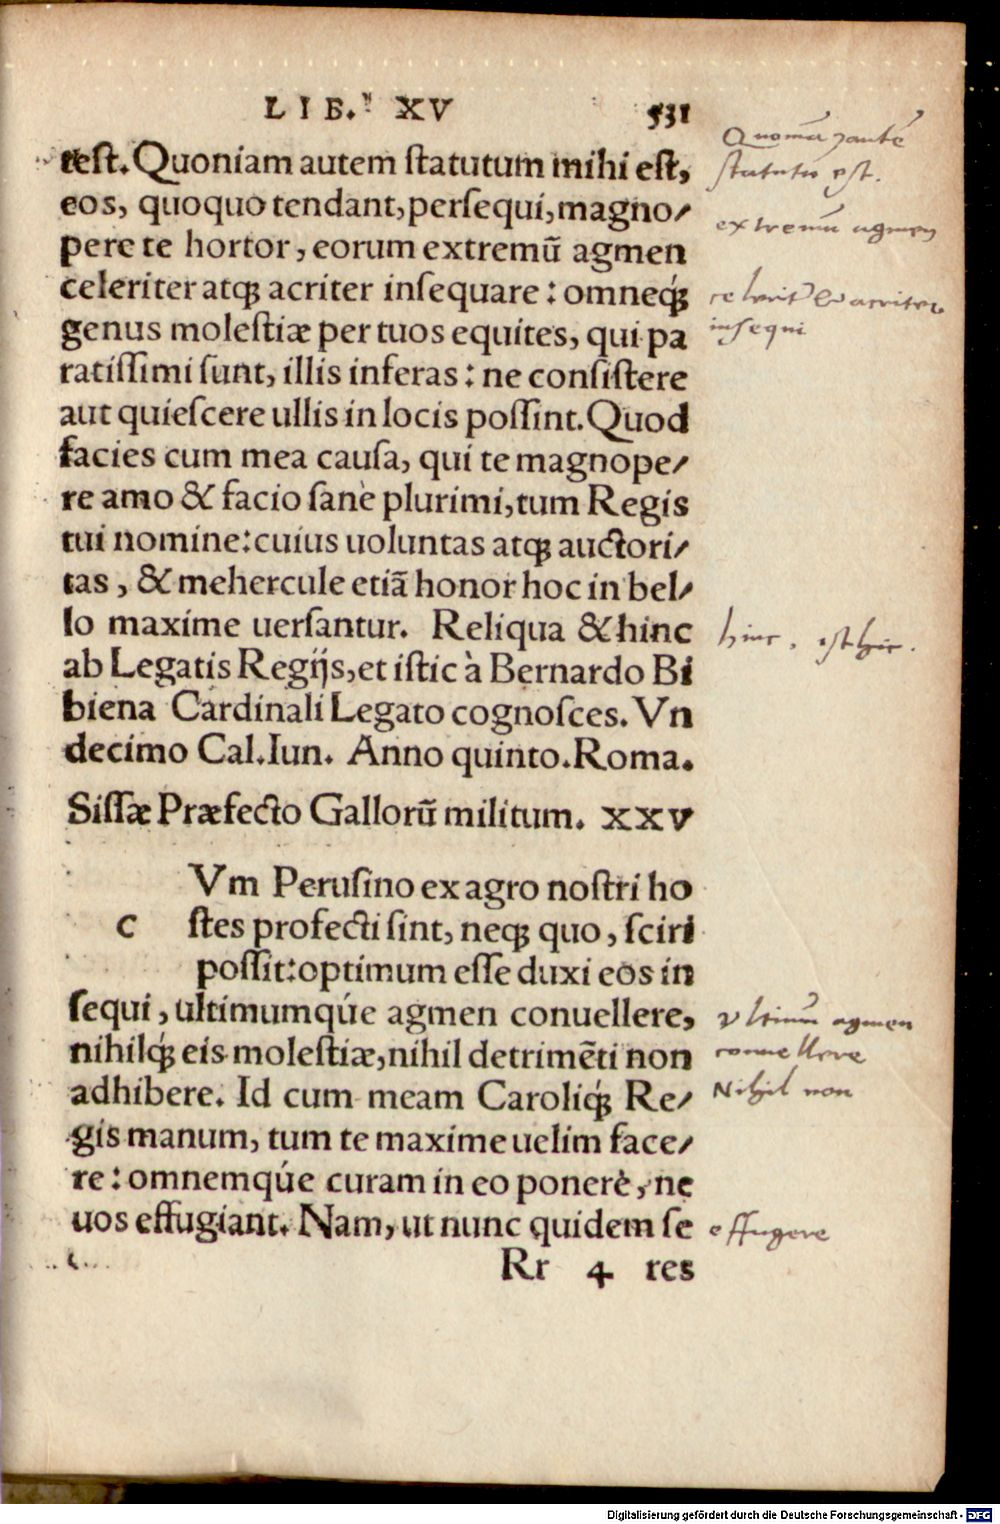 LIB. XV 531
test. Quoniam autem statutum mihi est,
eos, quoquo tendant, persequi, magno/
pere te hortor, eorum extremū agmen
celeriter atq; acriter insequare: omneq́;
genus molestiæ per tuos equites, qui pa
ratissimi sunt, illis inferas: ne consistere
aut quiescere ullis in locis possint. Quod
facies cum mea causa, qui te magnope/
re amo & facio sanè plurimi, tum Regis
tui nomine: cuius uoluntas atq; auctori/
tas, & mehercule etiā honor hoc in bel/
lo maxime uersantur. Reliqua & hinc
ab Legatis Regijs, et istic à Bernardo Bi
biena Cardinali Legato cognosces. Vn
decimo Cal. Iun. Anno quinto. Roma.
Sissæ Præfecto Gallorū militum. XXV
Vm Perusino ex agro nostri ho
C stes profecti sint, neq; quo, sciri
possit: optimum esse duxi eos in
sequi, ultimumqúe agmen conuellere,
nihilq́; eis molestiæ, nihil detrimēti non
adhibere. Id cum meam Caroliq́; Re/
gis manum, tum te maxime uelim face/
re: omnemqúe curam in eo ponerè, ne
uos effugiant. Nam, ut nunc quidem se
Rr 4 res
statutū est.
extremū agmen
acriter
insequi
hinc. est hic.
vltimū agmen
conuellere
Nihil non
effugere
Digitalisierung gefördert durch die Deutsche Forschungsgemeinschaft - DFG